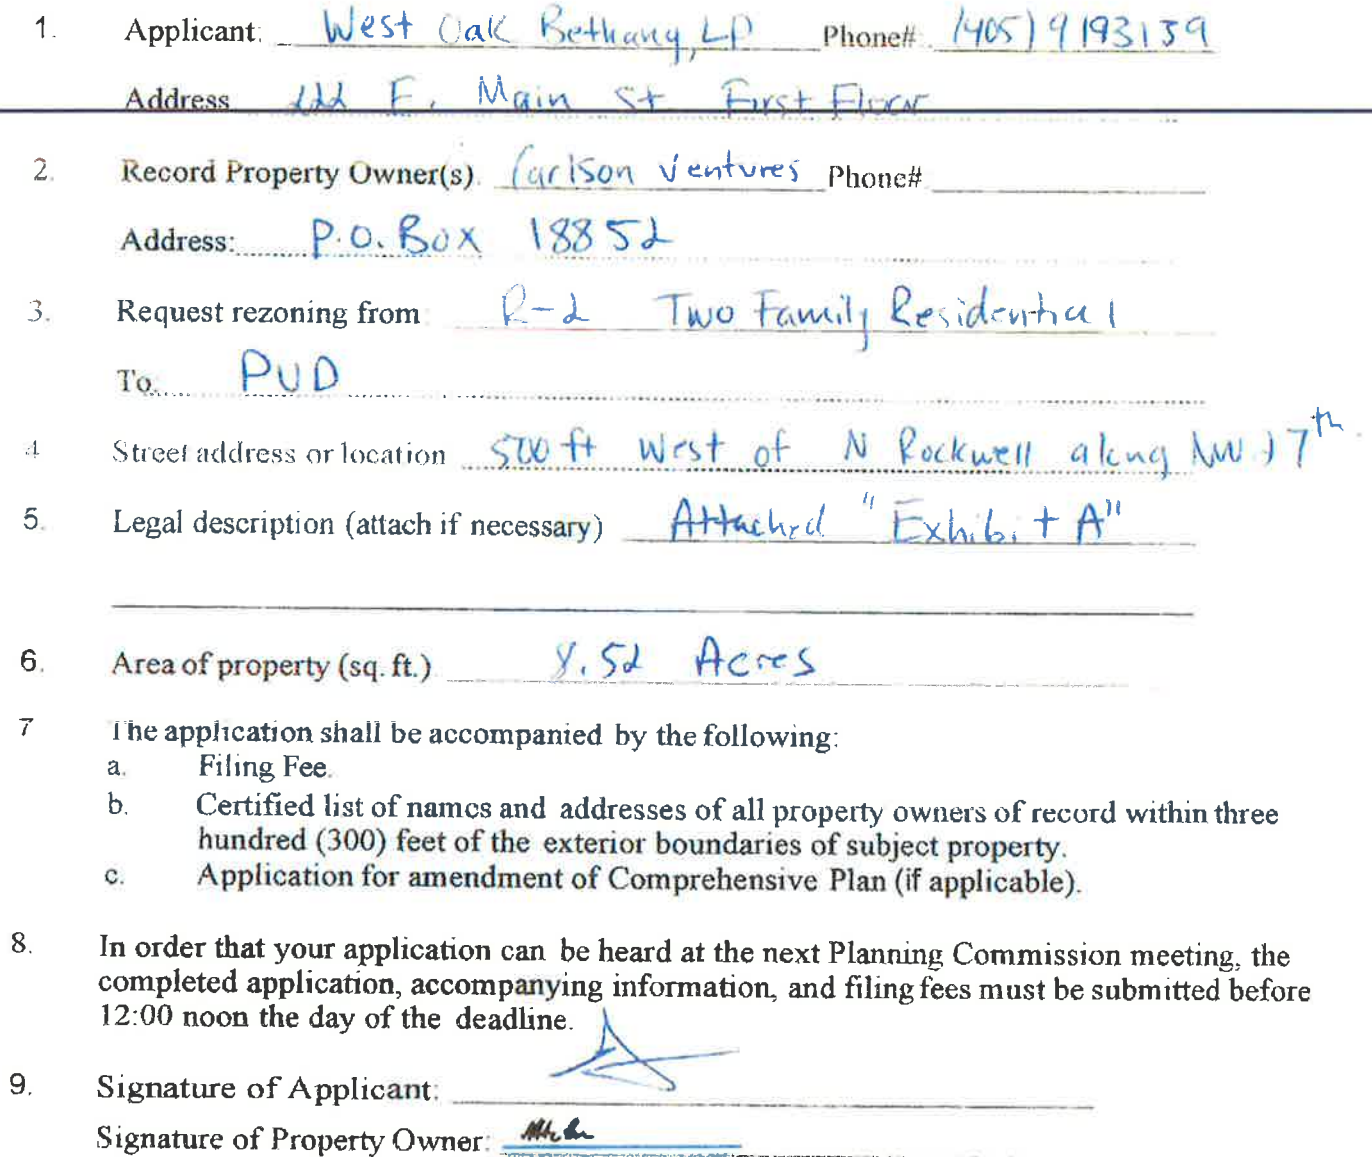 1. Applicant: West Oak Bethany, LP Phone# (405) 9193139
Address 222 E. Main St First Floor
2. Record Property Owner(s). Carlson Ventures Phone#
Address: P.O. Box 18852
3. Request rezoning from R-2 Two Family Residential
To: PUD
4 Street address or location 500 ft West of N Rockwell along NW 17th
5. Legal description (attach if necessary) Attached "Exhibit A"
6. Area of property (sq. ft.) Acres
7 The application shall be accompanied by the following:
a. Filing Fee.
b. Certified list of names and addresses of all property owners of record within three
hundred (300) feet of the exterior boundaries of subject property.
c. Application for amendment of Comprehensive Plan (if applicable).
8. In order that your application can be heard at the next Planning Commission meeting, the
completed application, accompanying information, and filing fees must be submitted before
12:00 noon the day of the deadline.
9. Signature of Applicant:
Signature of Property Owner: